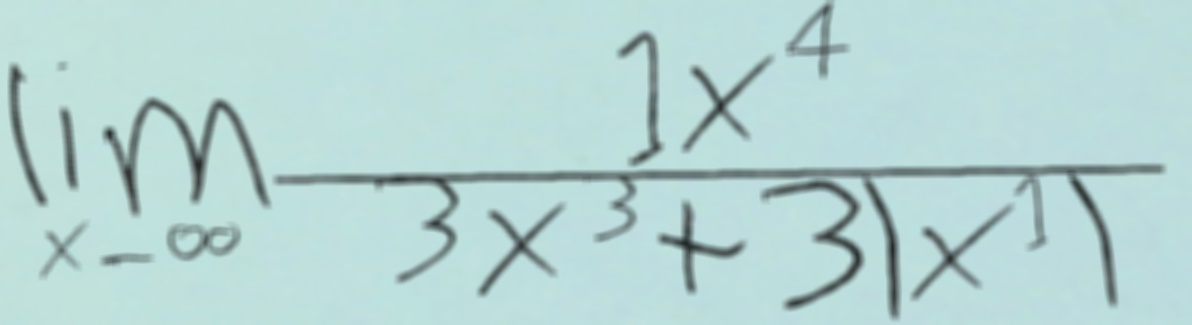 \lim_{x - \infty} \frac{1x^4}{3x^3 + 3|x^1|}